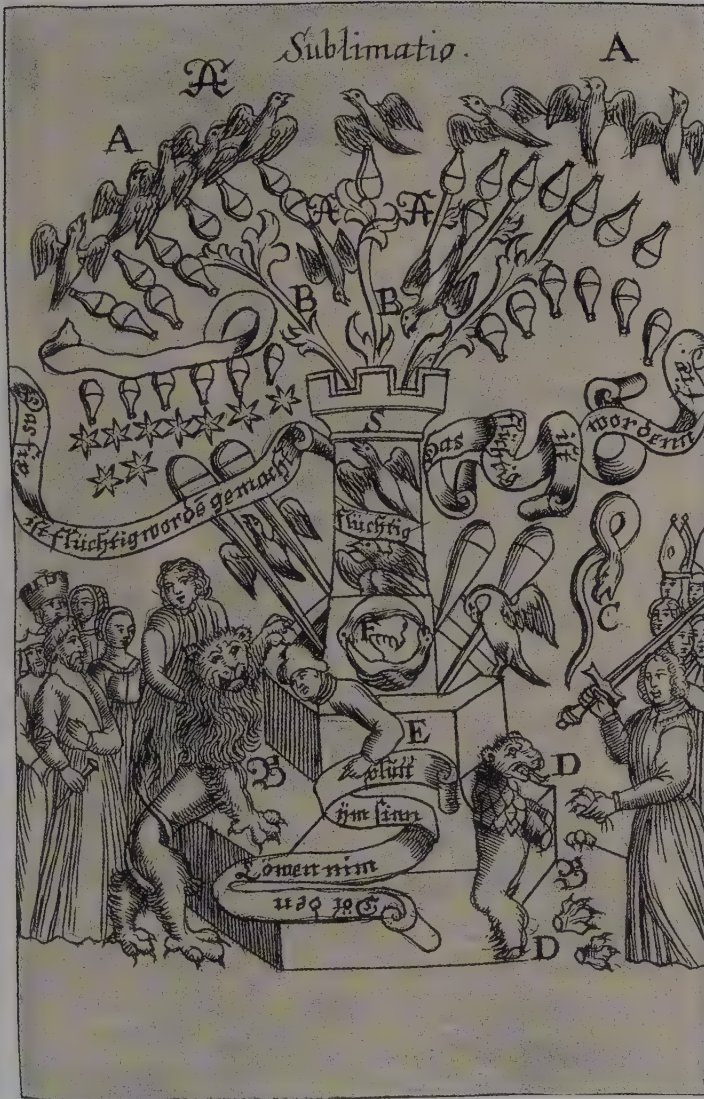 Sublimatio.
A
A
A
A
A
B
B
S
ist flüchtig words gemacht
Das
flüchtig
ist
wordenn
flüchtig
F
C
E
plütt
ÿm sinn
Lowen nim
den
B
D
B
D